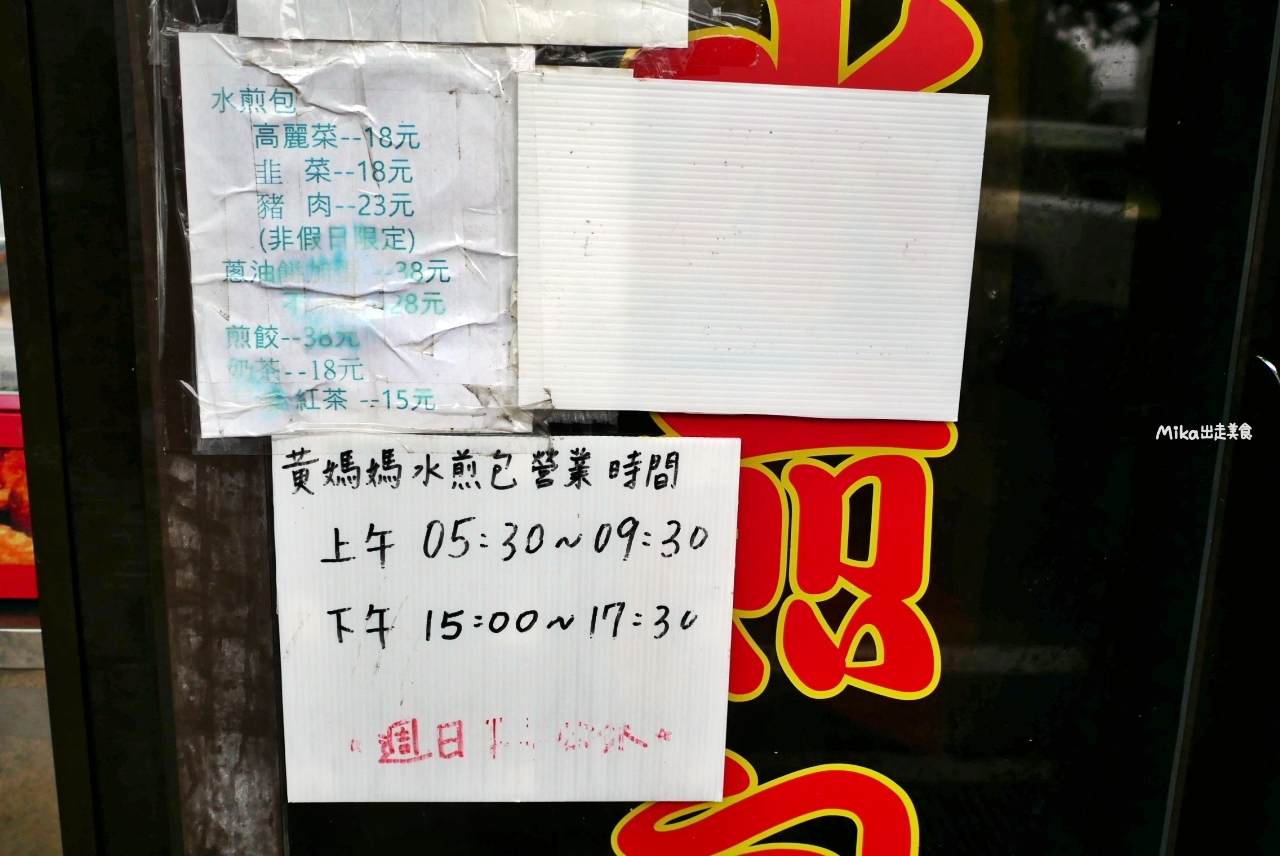 水煎包
高麗菜--18元
韭 菜--18元
豬 肉--23元
(非假日限定)
蔥油餅加蛋 --38元
不 28元
煎餃--38元
奶茶--18元
紅茶 --15元
黃媽媽水煎包營業時間
上午 05:30~09:30
下午 15:00~17:30
週日
Mika出走美食